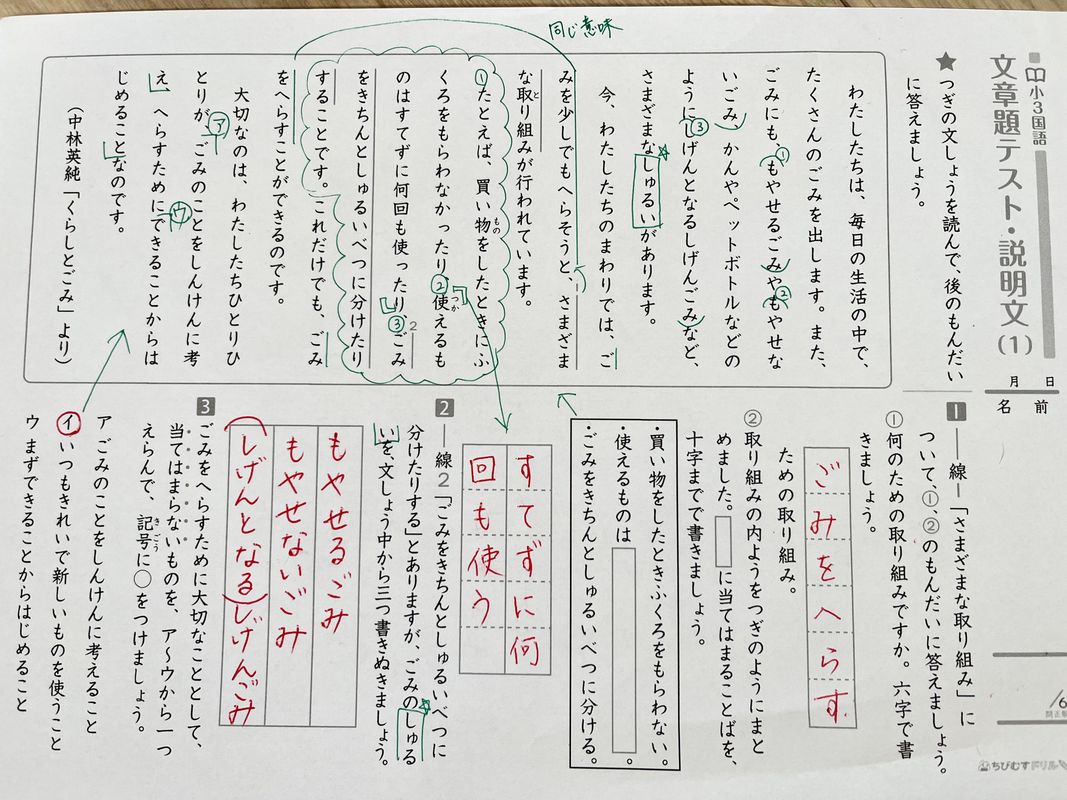 小3国語
文章題テスト・説明文(1)
月 日
名 前
/6
ちびむすドリル
★つぎの文しょうを読んで、後のもんだい
に答えましょう。
同じ意味
わたしたちは、毎日の生活の中で、
たくさんのごみを出します。また、
ごみにも、①もやせるごみや②もやせな
いごみ、かんやペットボトルなどの
ように③しげんとなるしげんごみなど、
さまざまなしゅるいがあります。
今、わたしたちのまわりでは、ご
みを少しでもへらそうと、さまざま
な取り組みが行われています。
と
①たとえば、買い物をしたときにふ
もの
くろをもらわなかったり、②使えるも
つか
のはすてずに何回も使ったり、③ごみ
2
をきちんとしゅるいべつに分けたり
することです。これだけでも、ごみ
をへらすことができるのです。
大切なのは、わたしたちひとりひ
とりが、ア ごみのことをしんけんに考
え、へらすためにウ できることからは
じめることなのです。
(中林英純「くらしとごみ」より)
1 ―線1「さまざまな取り組み」に
ついて、①、②のもんだいに答えましょう。
①何のための取り組みですか。六字で書
きましょう。
ごみをへらす
ための取り組み。
②取り組みの内ようをつぎのようにまと
めました。 に当てはまることばを、
十字までで書きましょう。
・買い物をしたときふくろをもらわない。
・使えるものは 。
・ごみをきちんとしゅるいべつに分ける。
すてずに何
回も使う
2 ―線2「ごみをきちんとしゅるいべつに
分けたりする」とありますが、ごみのしゅる
いを、文しょう中から三つ書きぬきましょう。
もやせるごみ
もやせないごみ
(しげんとなる)しげんごみ
3 ごみをへらすために大切なこととして、
当てはまらないものを、ア〜ウから一つ
えらんで、記号に○をつけましょう。
きごう
ア ごみのことをしんけんに考えること
イ いつもきれいで新しいものを使うこと
ウ まずできることからはじめること